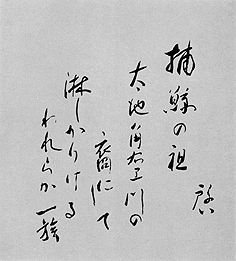 捕鯨の祖
啓
太地角右エ門の
裔にて
淋しかりける
われらか一族